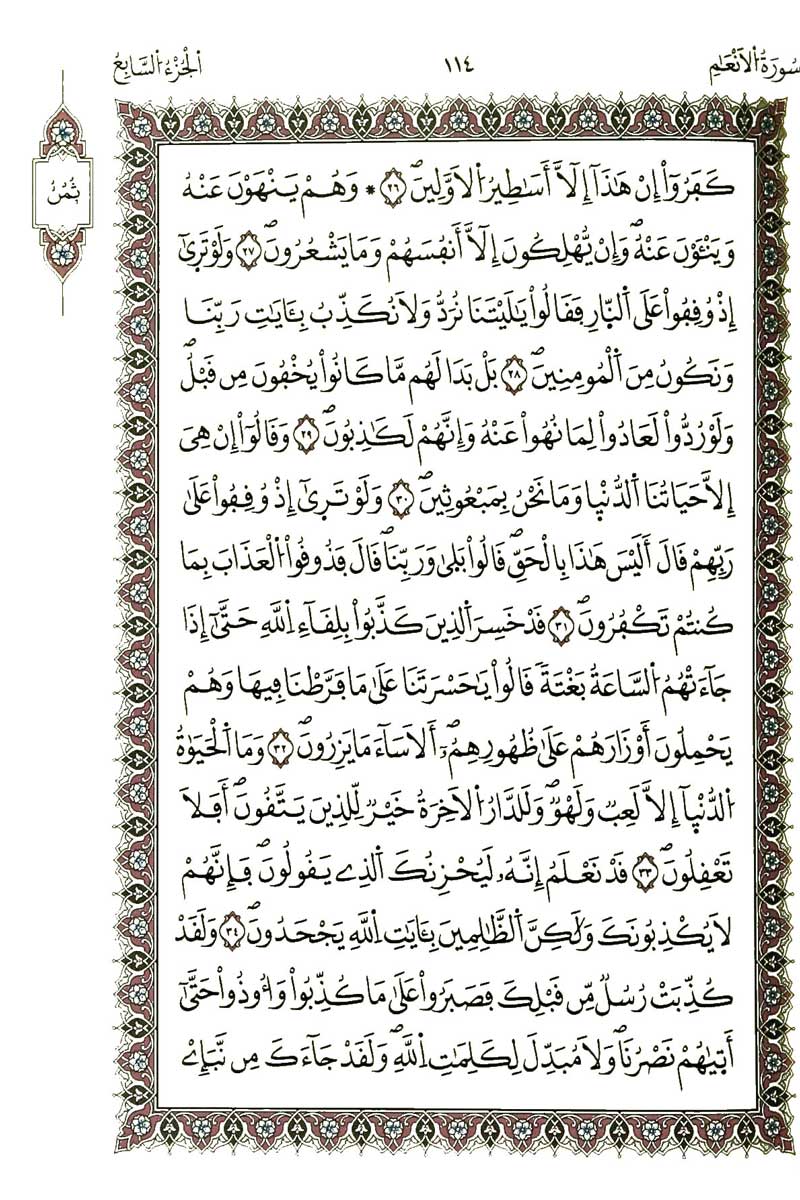 سُورَةُ الْأَنْعَامِ
١١٤
الْجُزْءُ السَّابِعُ
ثُمُنُ
كَفَرُوٓاْ إِنْ هَٰذَآ إِلَّآ أَسَٰطِيرُ اُلْأَوَّلِينَۖ ٢٦ * وَهُمْ يَنْهَوْنَ عَنْهُ
وَيَنْـَٔوْنَ عَنْهُۖ وَإِنْ يُّهْلِكُونَ إِلَّآ أَنفُسَهُمْ وَمَا يَشْعُرُونَۖ ٢٧ وَلَوْ تَر۪ىٰٓ
إِذْ وُقِفُواْ عَلَى اَلنّ۪ارِ فَقَالُواْ يَٰلَيْتَنَا نُرَدُّ وَلَا نُكَذِّبُ بِـَٔايَٰتِ رَبِّنَا
وَنَكُونُ مِنَ اَلْمُومِنِينَۖ ٢٨ بَلْ بَدَا لَهُم مَّا كَانُواْ يُخْفُونَ مِن قَبْلُۖ
وَلَوْ رُدُّواْ لَعَادُواْ لِمَا نُهُواْ عَنْهُ وَإِنَّهُمْ لَكَٰذِبُونَۖ ٢٩ وَقَالُوٓاْ إِنْ هِيَ
إِلَّا حَيَاتُنَا اَلدُّنْي۪ا وَمَا نَحْنُ بِمَبْعُوثِينَۖ ٣٠ وَلَوْ تَر۪ىٰٓ إِذْ وُقِفُواْ عَلَىٰ
رَبِّهِمْ قَالَ أَلَيْسَ هَٰذَا بِالْحَقِّۖ قَالُواْ بَلَىٰ وَرَبِّنَاۖ قَالَ فَذُوقُواْ اُلْعَذَابَ بِمَا
كُنتُمْ تَكْفُرُونَۖ ٣١ قَدْ خَسِرَ اَلذِينَ كَذَّبُواْ بِلِقَآءِ اِللَّهِ حَتَّىٰٓ إِذَا
جَآءَتْهُمُ اُلسَّاعَةُ بَغْتَةٗ قَالُواْ يَٰحَسْرَتَنَا عَلَىٰ مَا فَرَّطْنَا فِيهَا وَهُمْ
يَحْمِلُونَ أَوْزَارَهُمْ عَلَىٰ ظُهُورِهِمُۥٓۖ أَلَا سَآءَ مَا يَزِرُونَۖ ٣٢ وَمَا اَلْحَيَوٰةُ
اُلدُّنْي۪آ إِلَّا لَعِبٞ وَلَهْوٞۖ وَلَلدَّارُ اُلْأَخِرَةُ خَيْرٞ لِّلذِينَ يَتَّقُونَۖ أَفَلَا
تَعْقِلُونَۖ ٣٣ قَدْ نَعْلَمُ إِنَّهُۥ لَيُحْزِنُكَ اَلذِے يَقُولُونَۖ فَإِنَّهُمْ
لَا يُكْذِبُونَكَ وَلَٰكِنَّ اَلظَّٰلِمِينَ بِـَٔايَٰتِ اِللَّهِ يَجْحَدُونَۖ ٣٤ وَلَقَدْ
كُذِّبَتْ رُسُلٞ مِّن قَبْلِكَ فَصَبَرُواْ عَلَىٰ مَا كُذِّبُواْ وَأُوذُواْ حَتَّىٰٓ
أَت۪يٰهُمْ نَصْرُنَاۖ وَلَا مُبَدِّلَ لِكَلِمَٰتِ اِللَّهِۖ وَلَقَدْ جَآءَكَ مِن نَّبَإِےْ